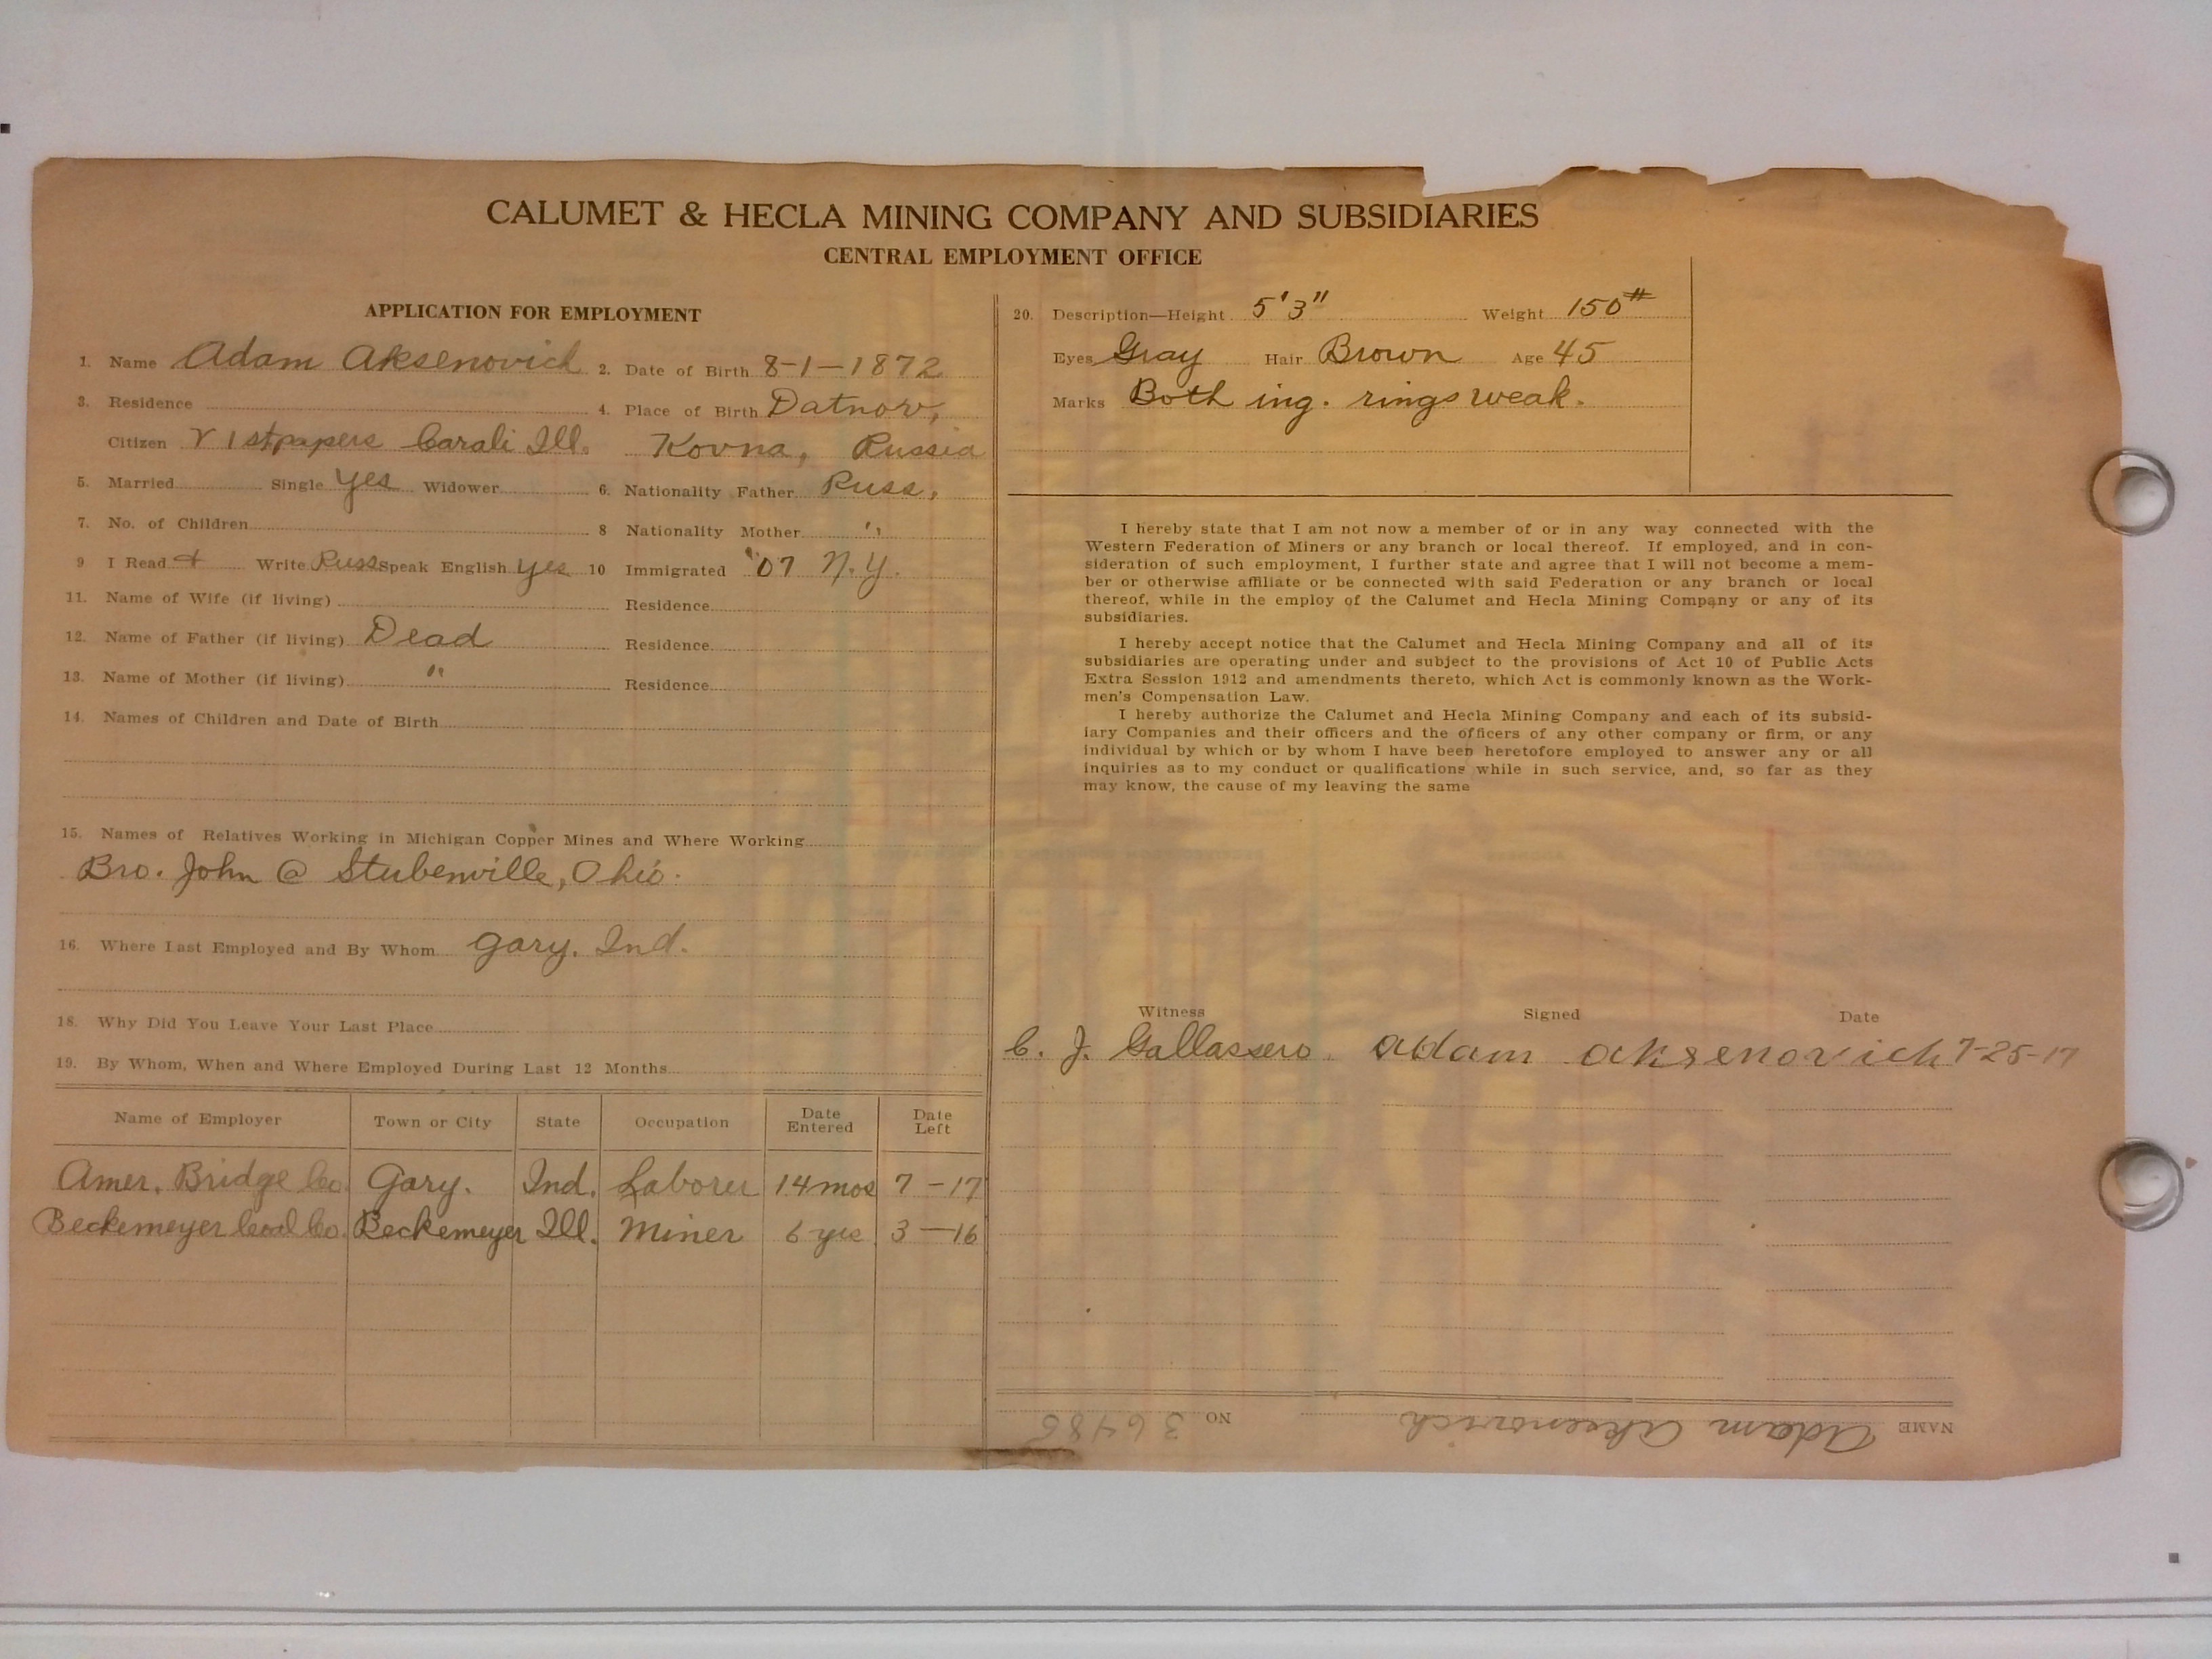 CALUMET & HECLA MINING COMPANY AND SUBSIDIARIES
CENTRAL EMPLOYMENT OFFICE
APPLICATION FOR EMPLOYMENT
1. Name Adam Aksenovich 2. Date of Birth 8-1-1872
3. Residence 4. Place of Birth Datnov,
Citizen 1st papers Ill. Kovna, Russia
5. Married Single Yes Widower 6. Nationality Father Russ,
7. No. of Children 8 Nationality Mother "
9 I Read + Write Russ Speak English yes 10 Immigrated '07 N.Y.
11. Name of Wife (if living) Residence
12. Name of Father (if living) Dead Residence
13. Name of Mother (if living) " Residence
14. Names of Children and Date of Birth
15. Names of Relatives Working in Michigan Copper Mines and Where Working
Bro. John @ Stubenville, Ohio.
16. Where Last Employed and By Whom Gary, Ind.
18. Why Did You Leave Your Last Place
19. By Whom, When and Where Employed During Last 12 Months
Name of Employer Town or City State Occupation Date Entered Date Left
Amer. Bridge Co. Gary. Ind. Laborer 14 mos 7-17
Beckemeyer Coal Co. Beckemeyer Ill. Miner 6 yrs 3-16
20. Description—Height 5'3" Weight 150#
Eyes Gray Hair Brown Age 45
Marks Both ing. rings weak.
I hereby state that I am not now a member of or in any way connected with the
Western Federation of Miners or any branch or local thereof. If employed, and in con-
sideration of such employment, I further state and agree that I will not become a mem-
ber or otherwise affiliate or be connected with said Federation or any branch or local
thereof, while in the employ of the Calumet and Hecla Mining Company or any of its
subsidiaries.
I hereby accept notice that the Calumet and Hecla Mining Company and all of its
subsidiaries are operating under and subject to the provisions of Act 10 of Public Acts
Extra Session 1912 and amendments thereto, which Act is commonly known as the Work-
men's Compensation Law.
I hereby authorize the Calumet and Hecla Mining Company and each of its subsid-
iary Companies and their officers and the officers of any other company or firm, or any
individual by which or by whom I have been heretofore employed to answer any or all
inquiries as to my conduct or qualifications while in such service, and, so far as they
may know, the cause of my leaving the same
Witness Signed Date
C. J. Gallassero adam aksenovich 7-25-17
NAME Adam Aksenovich NO 36486